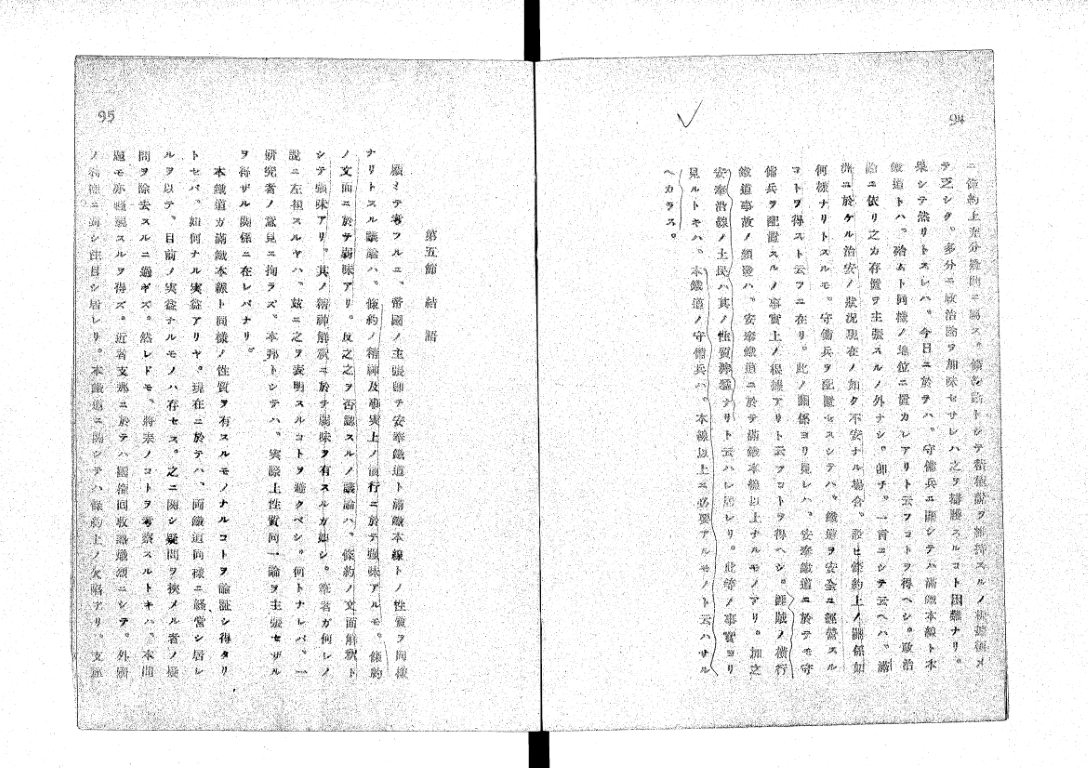 94
ニ條約上充分ニ屬ス。條シテ積極說ヲ維持スルノ根據極メ
テ乏シク。多分ニ政治論ヲ加味セサレハ之ヲ辯護スルコト困難ナリ。
果シテ然リトスレハ。今日ニ於テハ。守備兵ニ關シテハ滿鐵本線ト本
鐵道トハ。殆ムト同樣ノ地位ニ置カレアリト云フコトヲ得ヘシ。政治
論ニ依リ之カ存置ヲ主張スルノ外ナシ。卽チ。一言ニシテ云ヘハ。滿
洲ニ於ケル治安ノ狀況現在ノ如ク不安ナル場合。設ヒ條約上ノ關係如
何樣ナリトスルモ。守備兵ヲ配置セスシテハ。鐵道ヲ安全ニ經營スル
コトヲ得スト云フニ在リ。此ノ關係ヨリ見レハ。安奉鐵道ニ於テモ守
備兵ヲ配置スルノ事實上ノ根據アリト云フコトヲ得ヘシ。匪賊ノ橫行
鐵道事故ノ頻發ハ。安奉鐵道ニ於テ滿鐵本線以上ナルモノアリ。加之
安奉沿線ノ土民ハ其ノ性質獰猛ナリト云ハレ居レリ。此等ノ事實ヨリ
見ルトキハ。本鐵道ノ守備兵ハ。本線以上ニ必要アルモノト云ハサル
ヘカラス。
95
第五節 結語
顧ミテ考フルニ、帝國ノ主張卽チ安奉鐵道ト滿鐵本線トノ性質ヲ同樣
ナリトスル議論ハ、條約ノ精神及事實上ノ履行ニ於テ强味アルモ、條約
ノ文面ニ於テ弱味アリ。反之之ヲ否認スルノ議論ハ、條約ノ文面解釋ト
シテ强味アリ、其ノ精神解釋ニ於テ弱味ヲ有スルガ如シ。筆者ガ何レノ
說ニ左袒スルヤハ、玆ニ之ヲ表明スルコトヲ避クベシ。何トナレバ、一
硏究者ノ意見ニ拘ラズ、本邦トシテハ、實際上性質同一論ヲ主張セザル
ヲ得ザル關係ニ在レバナリ。
本鐵道ガ滿鐵本線ト同樣ノ性質ヲ有スルモノナルコトヲ論証シ得タリ
トセバ、如何ナル実益アリヤ。現在ニ於テハ、両鐵道同樣ニ經營シ居レ
ルヲ以テ、目前ノ実益ナルモノハ存セズ。之ニ関シ疑問ヲ挾メル者ノ疑
問ヲ除去スルニ過ギズ。然レドモ、將来ノコトヲ考察スルトキハ、本問
題モ亦輕視スルヲ得ズ。近者支那ニ於テハ國權回收熱熾烈ニシテ、外國
ノ利權ニ對シ注目シ居レリ。本鐵道ニ関シテハ條約上ノ欠陷アリ。支那